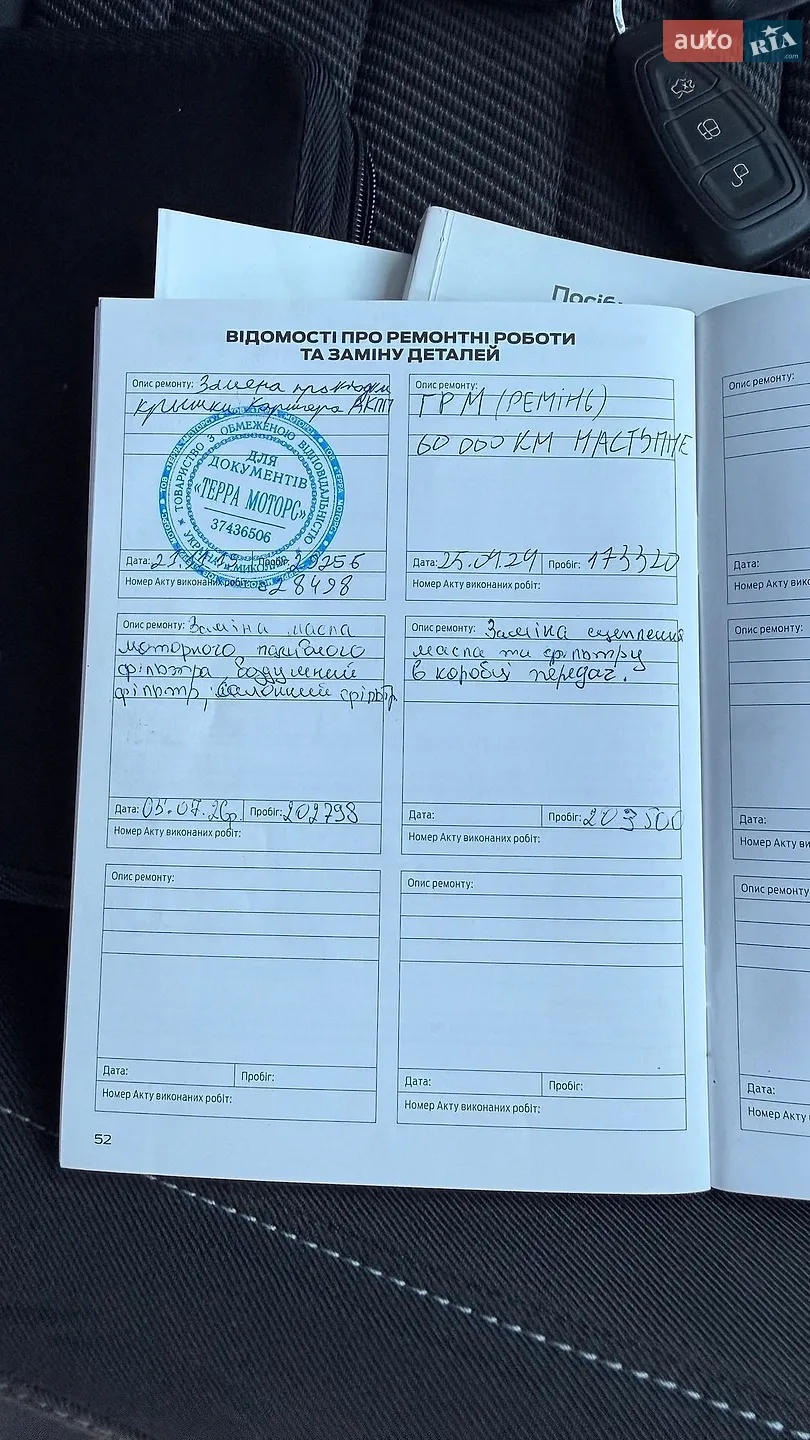 auto RIA.com
Посіб
ВІДОМОСТІ ПРО РЕМОНТНІ РОБОТИ
ТА ЗАМІНУ ДЕТАЛЕЙ
Опис ремонту: Замена прокладки
крышки картера АКПП
ТОВАРИСТВО З ОБМЕЖЕНОЮ ВІДПОВІДАЛЬНІСТЮ
ДЛЯ
ДОКУМЕНТІВ
«ТЕРРА МОТОРС»
37436506
Дата: Пробіг:
Номер Акту виконаних робіт: 28498
Опис ремонту:
ГРМ (РЕМІНЬ)
60 000 КМ НАСТУПНЕ
Дата: 25.01.24 Пробіг: 173320
Номер Акту виконаних робіт:
Опис ремонту: Заміна масла
моторного паливного
фільтра, воздушний
фільтр, салонний фільтр
Дата: 05.07.26р. Пробіг: 202798
Номер Акту виконаних робіт:
Опис ремонту: Заміна сцепления
масла та фільтру
в коробці передач.
Дата: Пробіг: 203500
Номер Акту виконаних робіт:
Опис ремонту:
Дата: Пробіг:
Номер Акту виконаних робіт:
Опис ремонту:
Дата: Пробіг:
Номер Акту виконаних робіт:
52
Опис ремонту:
Дата:
Номер Акту вико
Опис ремонту:
Дата:
Номер Акту ви
Опис ремонту:
Дата:
Номер Акту ви